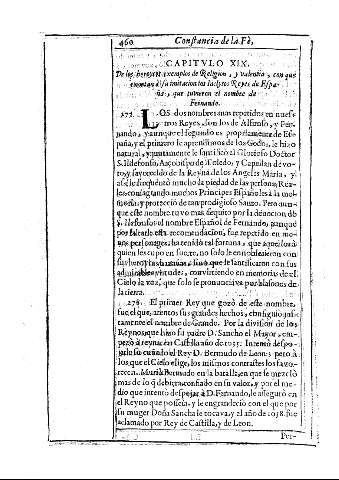 460 Constancia de la Fè,
CAPITVLO XIX.
De los heroycos exemplos de Religion, y valentia, con que
excitan à su imitacion los Inclytos Reyes de Espa-
ña, que tuvieron el nombre de
Fernando.
277. LOS dos nombres mas repetidos en nues-
tros Reyes, son los de Alfonso, y Fer-
nando, y aunque el segundo es propriamente de Espa-
ña, y el primero le aprendimos de los Godos, le hizo
natural, y juntamente le santificò al Glorioso Doctor
S. Ildefonso, Arçobispo de Toledo, y Capellan devo-
to, y favorecido de la Reyna de los Angeles Maria, y
assi le frequentò mucho la piedad de las personas Rea-
les consagrando muchos Principes Españoles à la me-
moria, y proteccion de tan prodigioso Santo. Pero aun-
que este nombre tuvo mas sequito por la devocion de
S. Ildefonso el nombre Español de Fernando, aunque
por faltarle esta recomendacion, fue repetido en me-
nos personages, ha tenido tal fortuna, que aquellos à
quien les cupo en suerte, no solo le ennoblecieron con
sus heroycas hazañas, sino que le santificaron con sus
admirables virtudes, convirtiendo en memorias de el
Cielo la voz, que solo se pronunciava por blasones de
la tierra.
278. El primer Rey que gozò de este nombre,
fue el que, atentos sus grandes hechos, consiguiò jus-
tamente el nombre de Grande. Por la division de los
Reynos, que hizo su padre D. Sancho el Mayor, em-
pezò à reynar en Castilla año de 1035. Intentò despo-
jarlo su cuñado el Rey D. Bermudo de Leon; pero à
los que el Cielo elige, los mismos contrastes los favo-
recen. Muriò Bermudo en la batalla, en que se mezclò
mas de lo q̃ debiera, confiado en su valor, y por el me-
dio que intentò despojar à D. Fernando, le assegurò en
el Reyno que posseìa, y le engrandeciò con el que por
su muger Doña Sancha le tocava, y el año de 1038. fue
aclamado por Rey de Castilla, y de Leon.
Per-